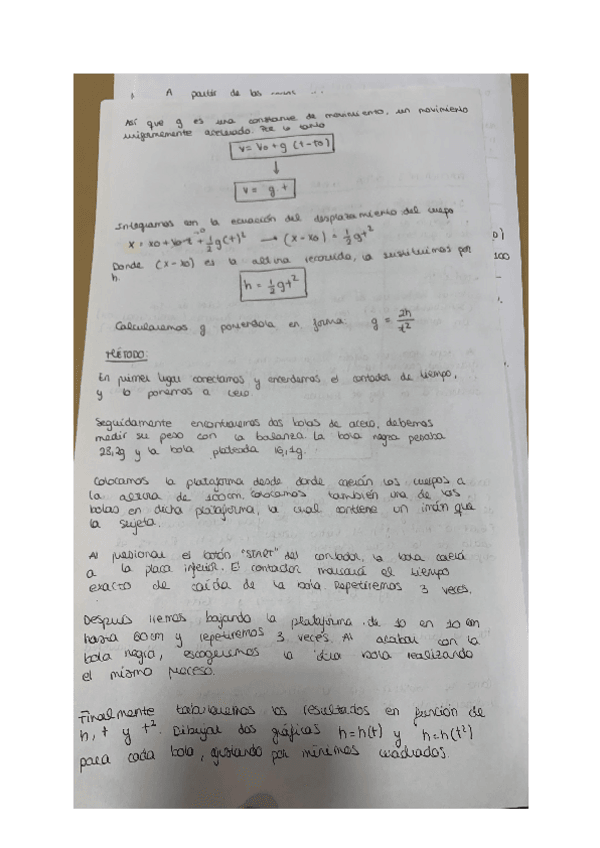 A partir de los
Así que g es una constante de movimiento, un movimiento
uniformemente acelerado. Por lo tanto
v = v0 + g (t - t0)
↓
v = g t
Integramos con la ecuación del desplazamiento del cuerpo
x = x0 + v0 t + 1/2 g(t)² → (x - x0) = 1/2 gt²
Donde (x - x0) es la altura recorrida, la sustituimos por
h.
h = 1/2 gt²
Calcularemos g poniéndola en forma: g = 2h/t²
MÉTODO:
En primer lugar conectamos y encendemos el contador de tiempo,
y lo ponemos a cero.
Seguidamente encontraremos dos bolas de acero, debemos
medir su peso con la balanza. La bola negra pesaba
28,2g y la bola plateada 16,1g.
Colocamos la plataforma desde donde caerán los cuerpos a
la altura de 100cm. Colocamos también una de las
bolas en dicha plataforma, la cual contiene un imán que
la sujeta.
Al presionar el botón "START" del contador, la bola caerá
a la placa inferior. El contador marcará el tiempo
exacto de caída de la bola. Repetiremos 3 veces.
Después iremos bajando la plataforma de 10 en 10 cm
hasta 60cm y repetiremos 3 veces. Al acabar con la
bola negra, escogeremos la otra bola realizando
el mismo proceso.
Finalmente tabularemos los resultados en función de
h, t y t². Dibujar dos gráficas h=h(t) y h=h(t²)
para cada bola, ajustando por mínimos cuadrados.